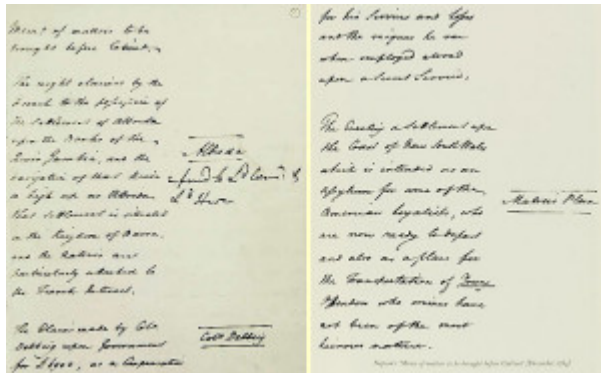 Mem: of matters to be
brought before Cabinet.
The right claimed by the
French to the possession of
the Settlement of Albreda
upon the Banks of the
River Gambia, and the
navigation of that River
as high up as Albreda
that settlement is situated
in the Kingdom of Barra,
and the Natives are
particularly attached to
the French Interest.
Albreda
The Claim made by Colo
Debbeig upon Government
for as a Compensation
Colo Debbeig
for his Services and Losses
and the risques he ran
when employed abroad
upon a Secret Service.
The Erecting a Settlement upon
the Coast of New South Wales
which is intended as an
Assylum for some of the
American Loyalists, who
are now ready to depart
and also as a place for
the Transportation of Young
Offenders whose crimes have
not been of the most
heinous nature.
Matra's Plan
Nepean's 'Memo of matters to be brought before Cabinet'